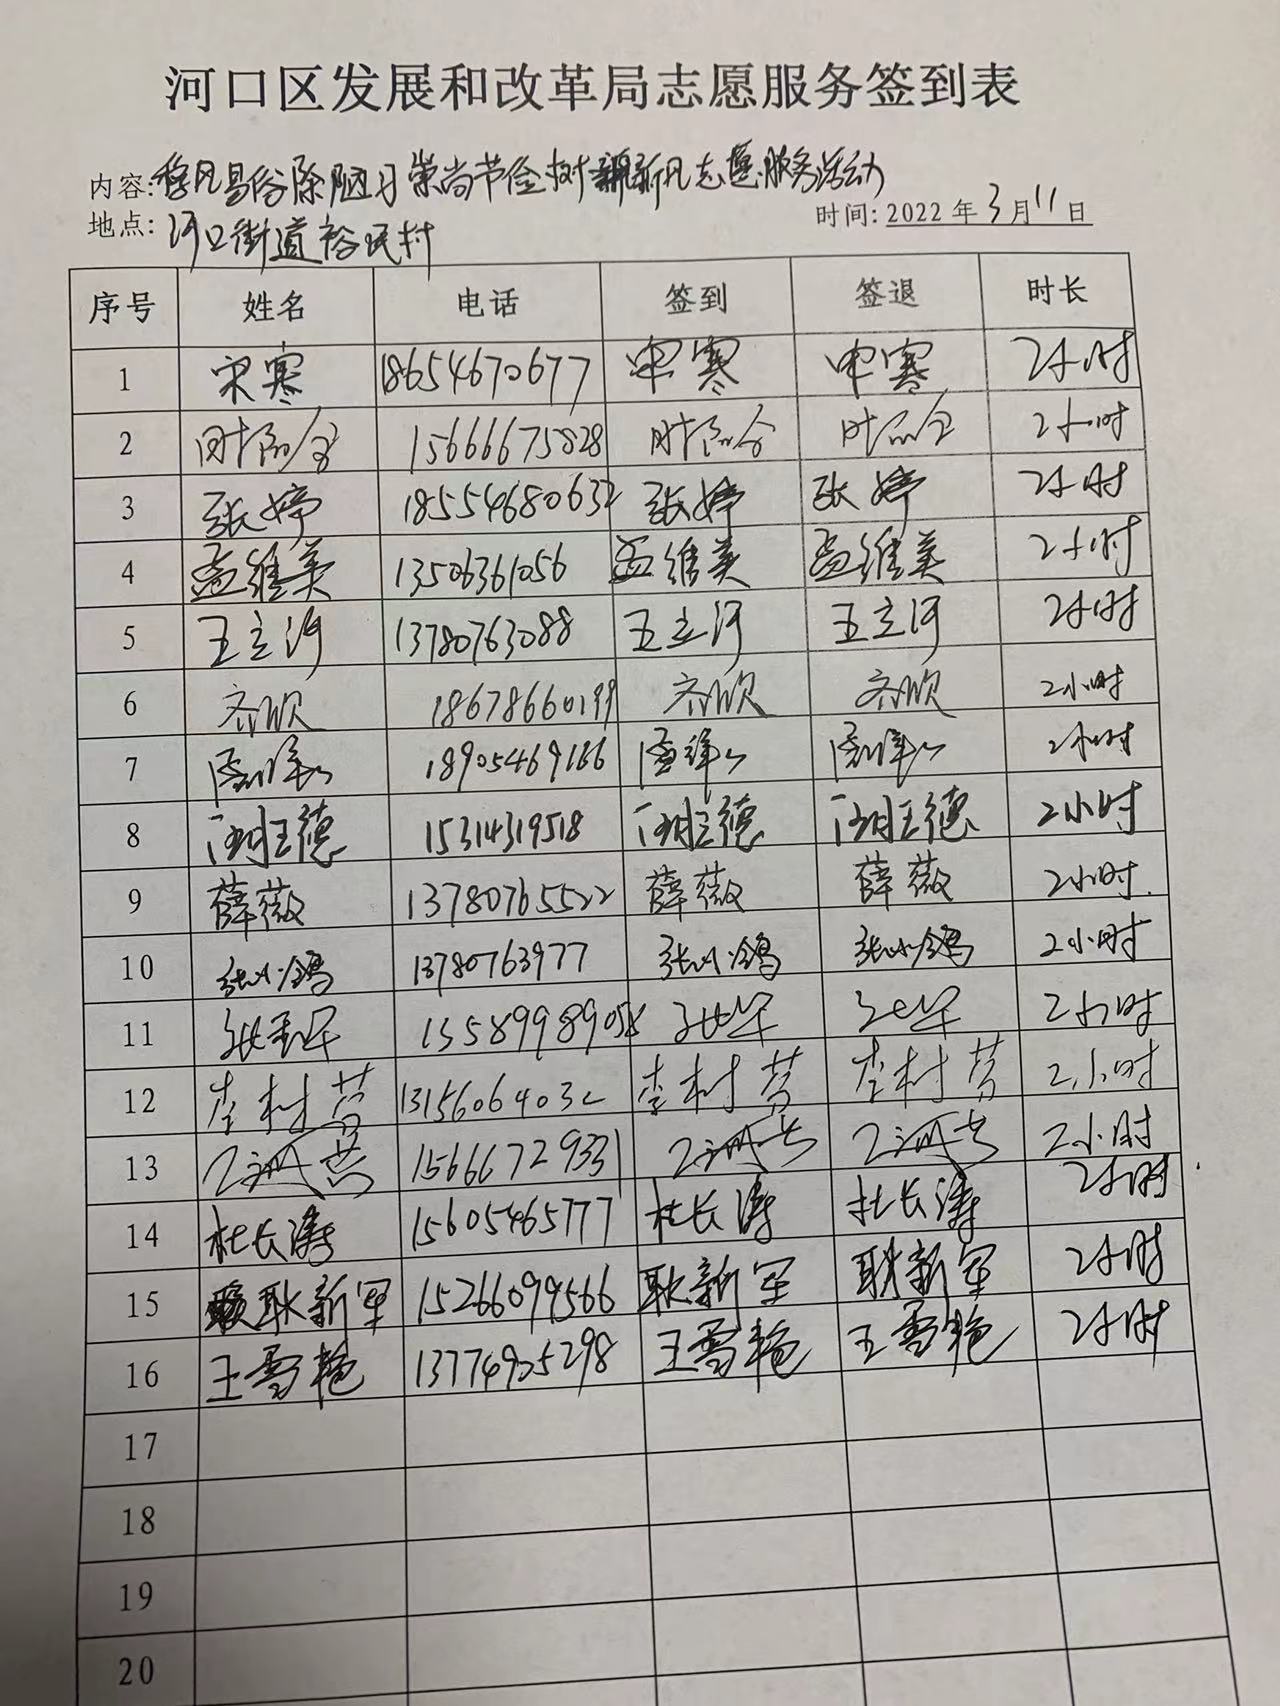 河口区发展和改革局志愿服务签到表
内容:移风易俗除陋习崇尚节俭树新风志愿服务活动
地点:河口街道裕民村
时间:2022年3月11日
序号 姓名 电话 签到 签退 时长
1 宋寒 18654670677 寒 寒 2小时
2 15666675828 2小时
3 张婷 18554680632 张婷 张婷 2小时
4 孟维美 13506361056 孟维美 孟维美 2小时
5 王立河 13780763088 王立河 王立河 2小时
6 齐欣 18678660199 齐欣 齐欣 2小时
7 18905469166 2小时
8 德 15314319518 德 德 2小时
9 薛薇 13780765522 薛薇 薛薇 2小时
10 张小鸽 13780763977 张小鸽 张小鸽 2小时
11 2小时
12 李树芳 13156064032 李树芳 李树芳 2小时
13 15666729331 2小时
14 杜长涛 15605465777 杜长涛 杜长涛 2小时
15 耿新军 15266099566 耿新军 耿新军 2小时
16 王雪艳 13774925298 王雪艳 王雪艳 2小时
17
18
19
20